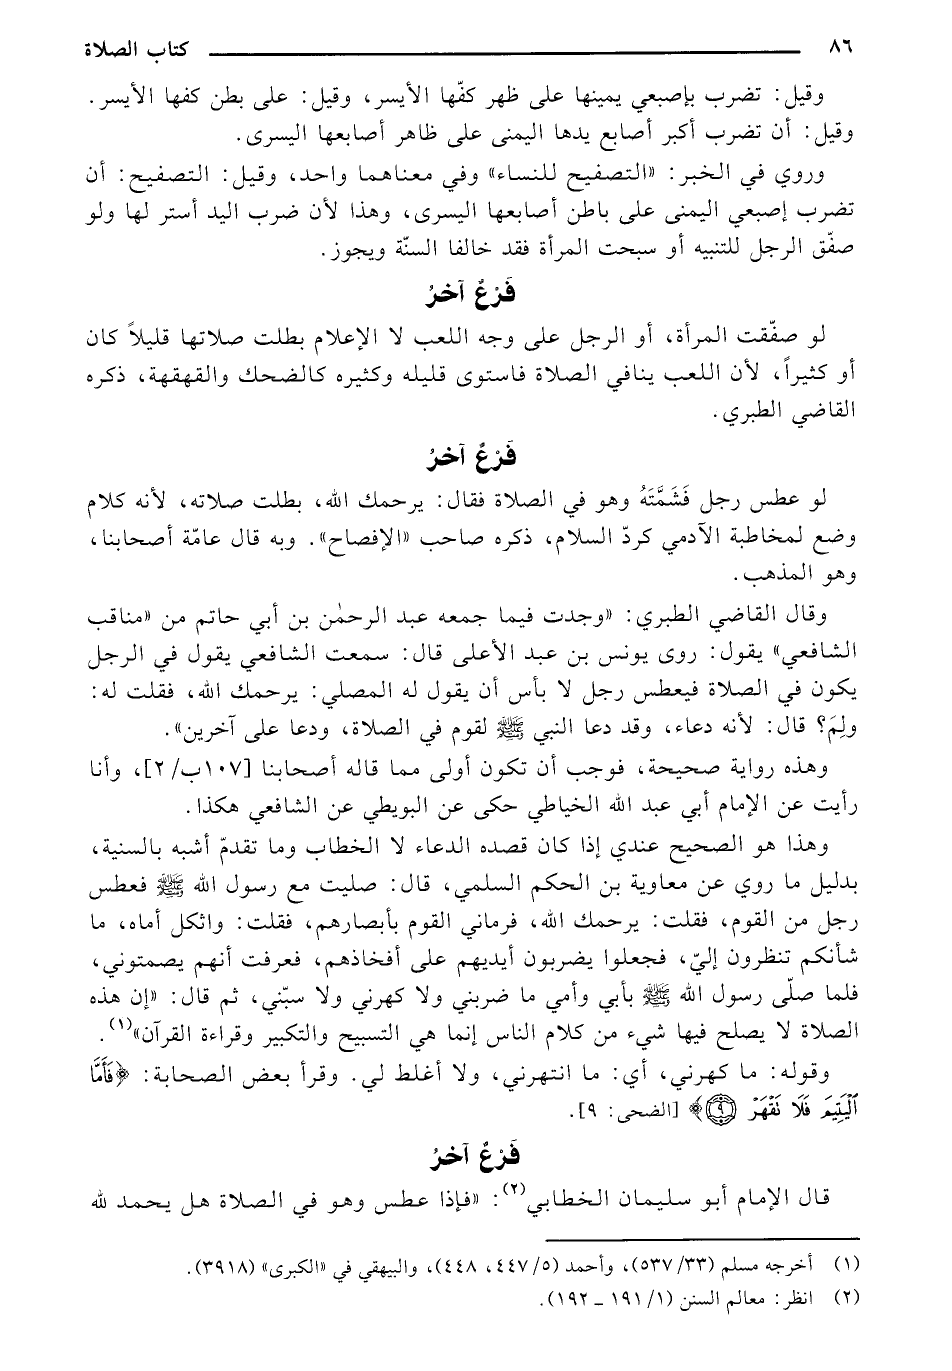 ٨٦ كتاب الصلاة
وقيل: تضرب بإصبعي يمينها على ظهر كفّها الأيسر، وقيل: على بطن كفها الأيسر.
وقيل: أن تضرب أكبر أصابع يدها اليمنى على ظاهر أصابعها اليسرى.
وروي في الخبر: «التصفيح للنساء» وفي معناهما واحد، وقيل: التصفيح: أن
تضرب إصبعي اليمنى على باطن أصابعها اليسرى، وهذا لأن ضرب اليد أستر لها ولو
صفّق الرجل للتنبيه أو سبحت المرأة فقد خالفا السنّة ويجوز.
فَرْعٌ آخرُ
لو صفّقت المرأة، أو الرجل على وجه اللعب لا الإعلام بطلت صلاتها قليلاً كان
أو كثيراً، لأن اللعب ينافي الصلاة فاستوى قليله وكثيره كالضحك والقهقهة، ذكره
القاضي الطبري.
فَرْعٌ آخرُ
لو عطس رجل فَشَمَّتَهُ وهو في الصلاة فقال: يرحمك الله، بطلت صلاته، لأنه كلام
وضع لمخاطبة الآدمي كردّ السلام، ذكره صاحب «الإفصاح». وبه قال عامّة أصحابنا،
وهو المذهب.
وقال القاضي الطبري: «وجدت فيما جمعه عبد الرحمٰن بن أبي حاتم من «مناقب
الشافعي» يقول: روى يونس بن عبد الأعلى قال: سمعت الشافعي يقول في الرجل
يكون في الصلاة فيعطس رجل لا بأس أن يقول له المصلي: يرحمك الله، فقلت له:
ولِمَ؟ قال: لأنه دعاء، وقد دعا النبي ﷺ لقوم في الصلاة، ودعا على آخرين».
وهذه رواية صحيحة، فوجب أن تكون أولى مما قاله أصحابنا [١٠٧ب/ ٢]، وأنا
رأيت عن الإمام أبي عبد الله الخياطي حكى عن البويطي عن الشافعي هكذا.
وهذا هو الصحيح عندي إذا كان قصده الدعاء لا الخطاب وما تقدمّ أشبه بالسنية،
بدليل ما روي عن معاوية بن الحكم السلمي، قال: صليت مع رسول الله ﷺ فعطس
رجل من القوم، فقلت: يرحمك الله، فرماني القوم بأبصارهم، فقلت: واثكل أماه، ما
شأنكم تنظرون إليّ، فجعلوا يضربون أيديهم على أفخاذهم، فعرفت أنهم يصمتوني،
فلما صلّى رسول الله ﷺ بأبي وأمي ما ضربني ولا كهرني ولا سبّني، ثم قال: «إن هذه
الصلاة لا يصلح فيها شيء من كلام الناس إنما هي التسبيح والتكبير وقراءة القرآن»(١).
وقوله: ما كهرني، أي: ما انتهرني، ولا أغلظ لي. وقرأ بعض الصحابة: ﴿فَأَمَّا
ٱلْيَتِيمَ فَلَا نَقْهَرْ ۝٩﴾ [الضحى: ٩].
فَرْعٌ آخرُ
قال الإمام أبو سليمان الخطابي(٢): «فإذا عطس وهو في الصلاة هل يحمد لله
(١) أخرجه مسلم (٣٣/ ٥٣٧)، وأحمد (٥/ ٤٤٧، ٤٤٨)، والبيهقي في «الكبرى» (٣٩١٨).
(٢) انظر: معالم السنن (١/ ١٩١ - ١٩٢).